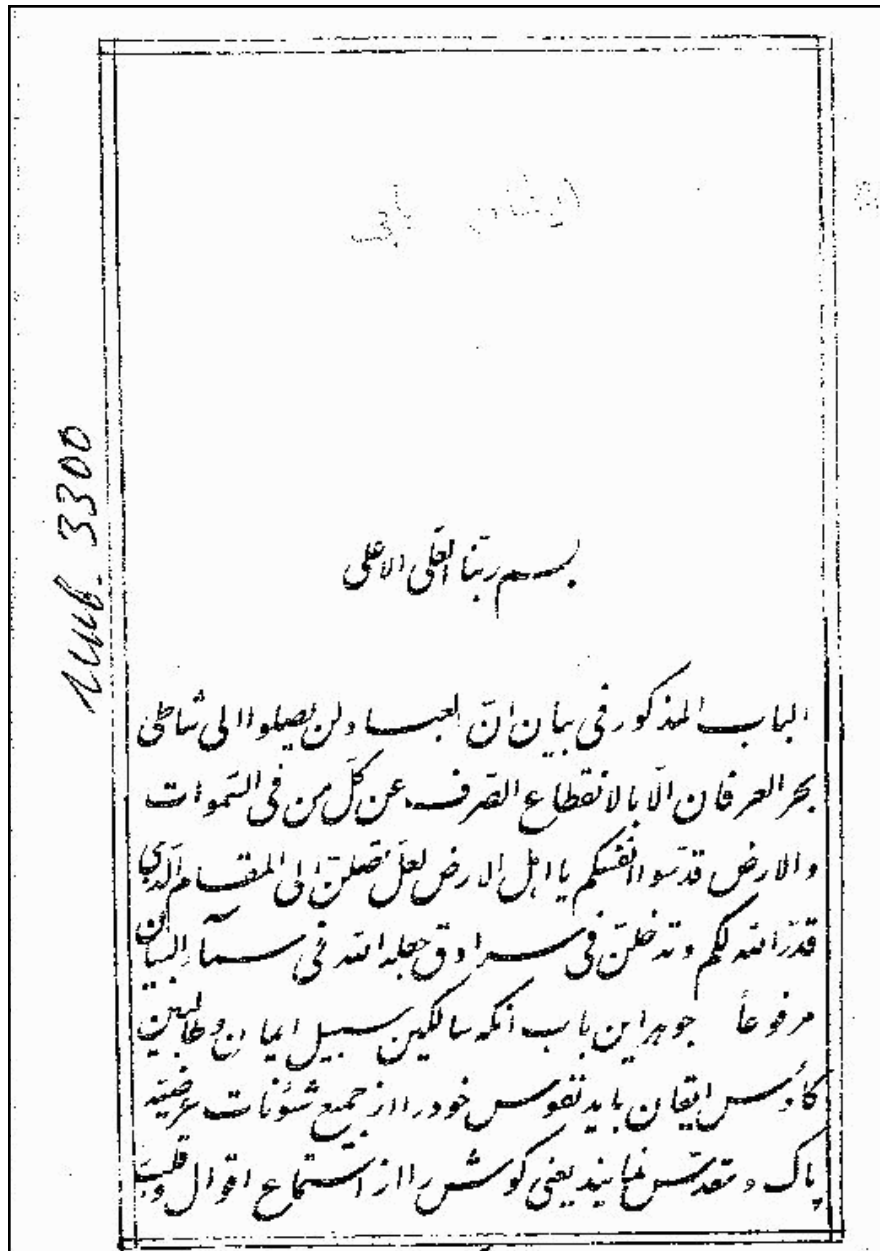 بسم ربّنا العلّی الاعلی
الباب المذکور فی بیان انّ العباد لن یصلوا الی شاطی
بحر العرفان الّا بالانقطاع الصّرف عن کلّ من فی السّموات
والارض قدّسوا انفسکم یا اهل الارض لعلّ تصلنّ الی المقام الّذی
قدّر الله لکم و تدخلنّ فی سرادق جعله الله فی سمآء البیان
مرفوعاً جوهر این باب آنکه سالکین سبیل ایمان و طالبین
کأوس ایقان باید نفوس خود را از جمیع شئونات عرضیّه
پاک و مقدّس نمایند یعنی گوش را از استماع اقوال و قلب
3300